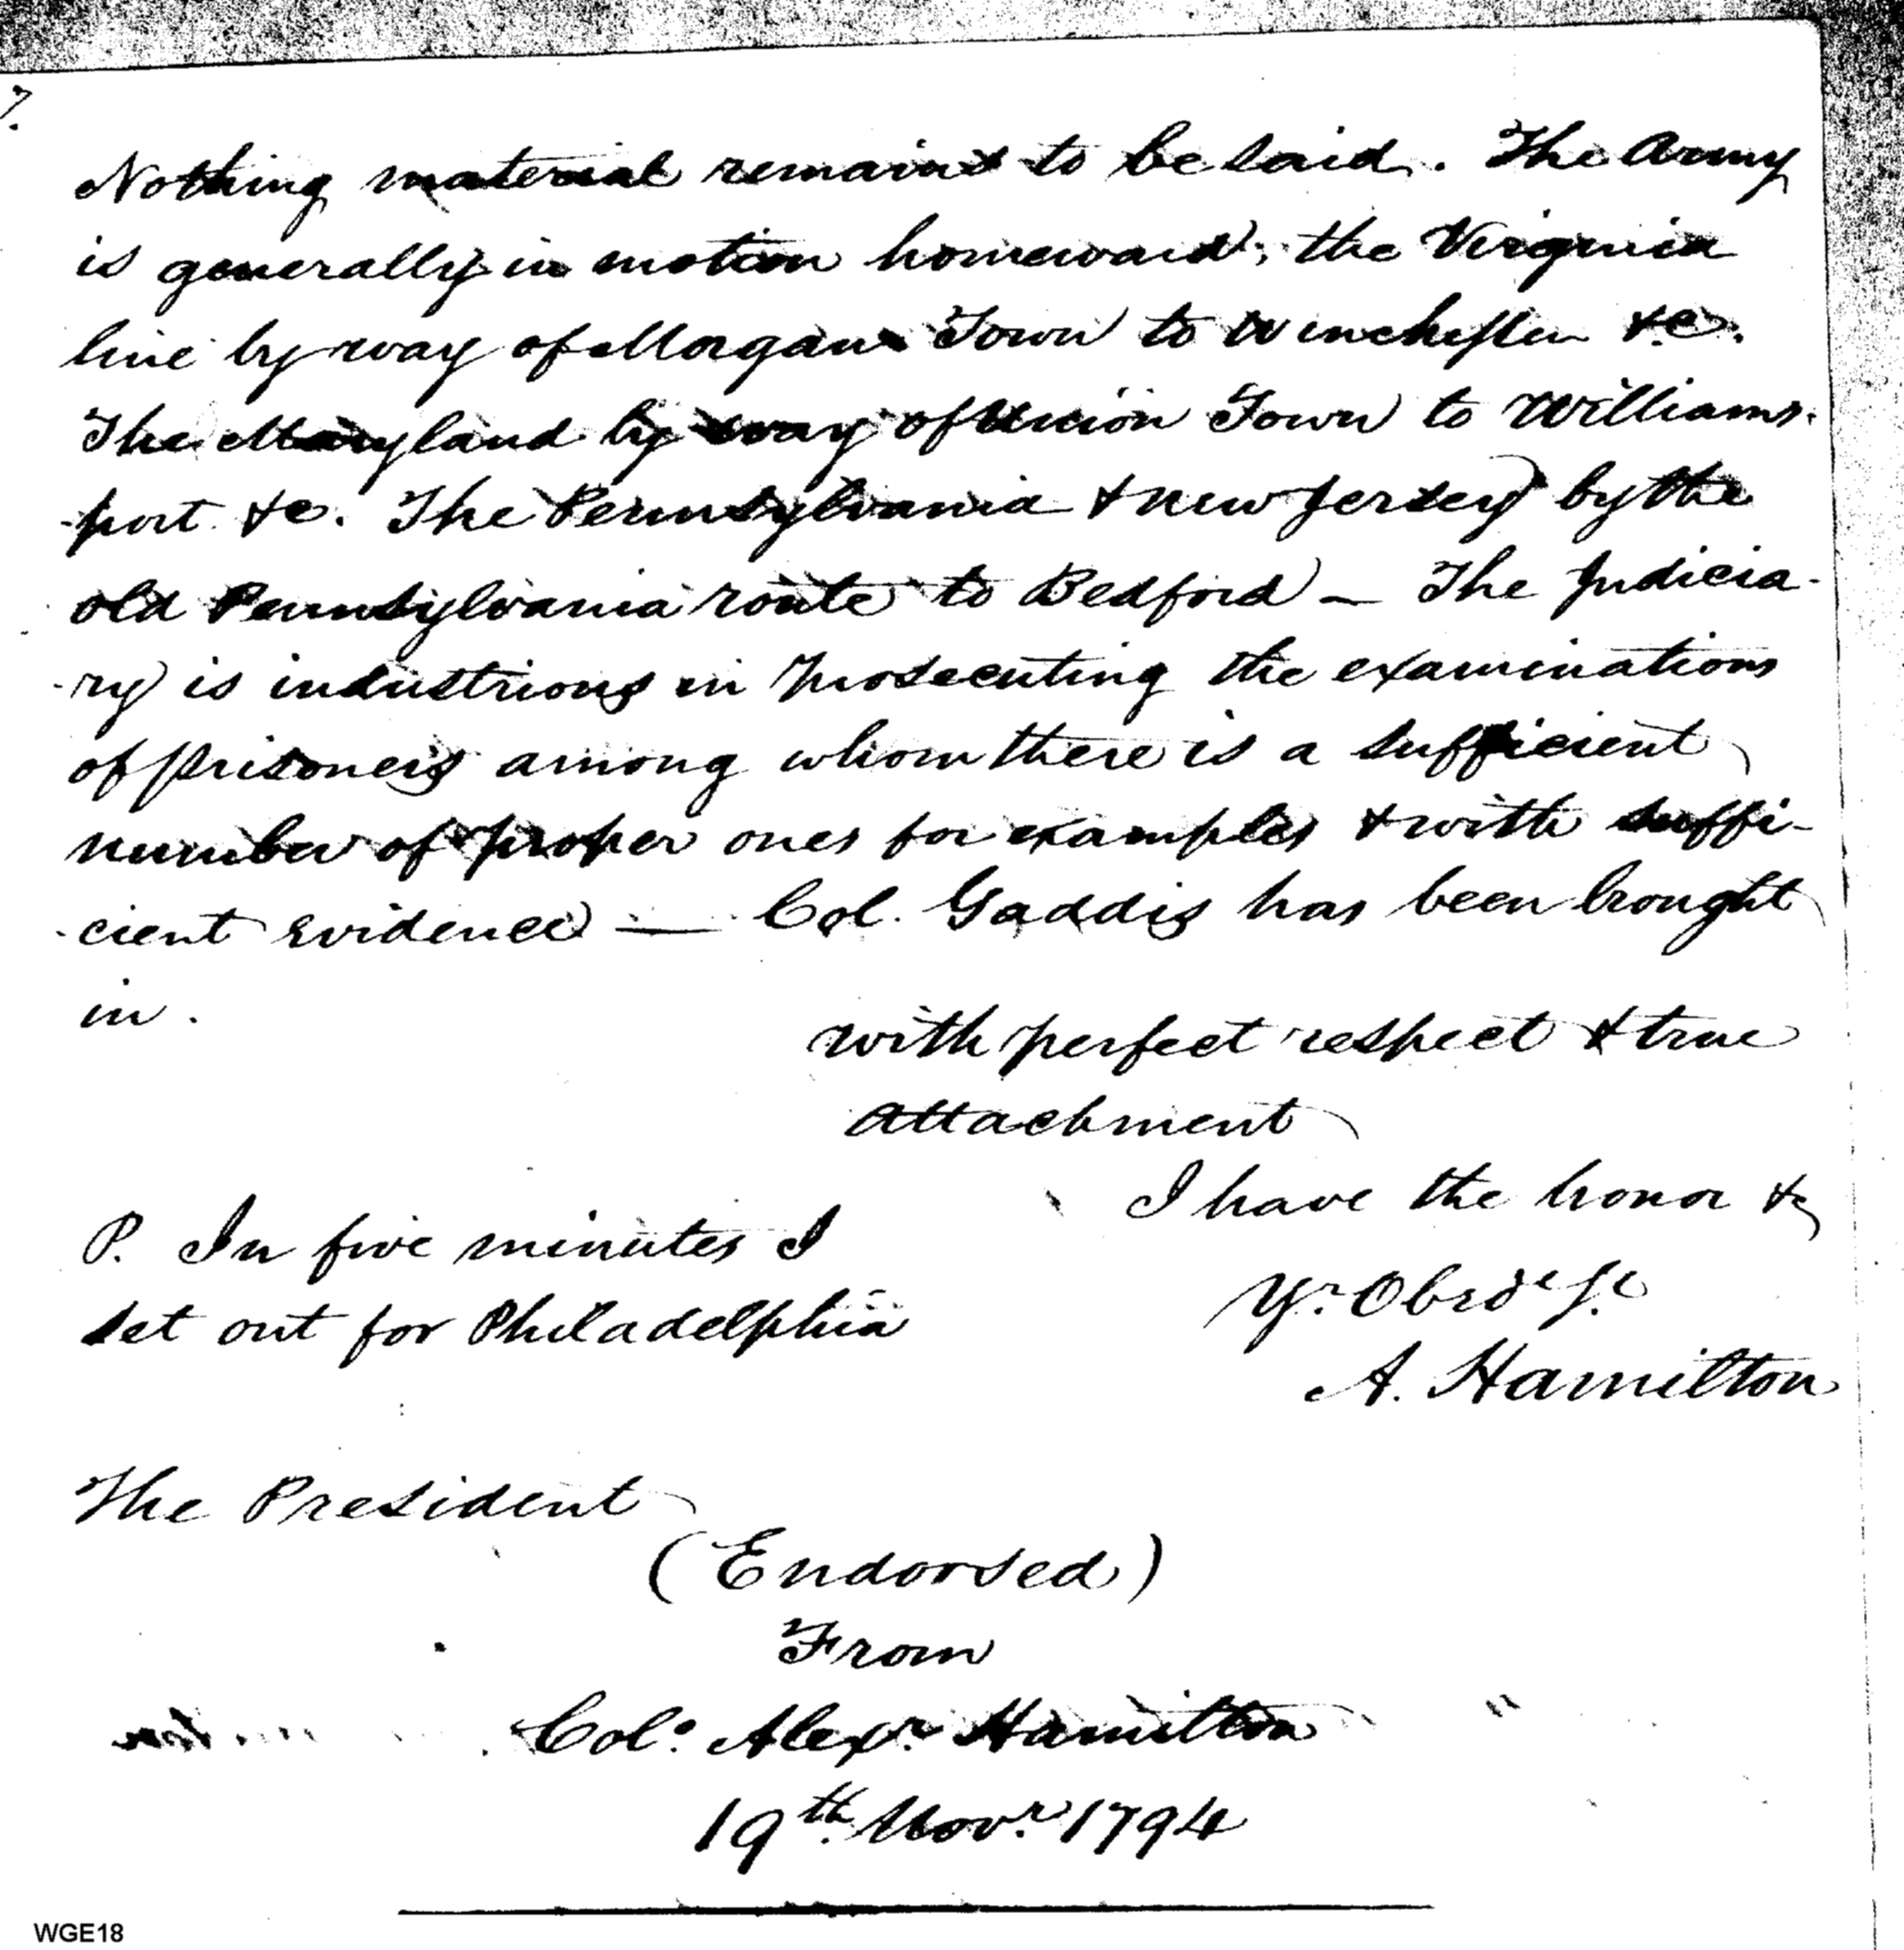 7.
Nothing material remains to be said. The Army
is generally in motion homeward; the Virginia
line by way of Morgan Town to Winchester &c.
The Maryland by way of Union Town to Williams-
-port &c. The Pennsylvania & new Jersey by the
old Pennsylvania route to Bedford — The Judicia-
-ry is industrious in prosecuting the examinations
of prisoners among whom there is a sufficient
number of proper ones for examples & with suffi-
-cient evidence — Col. Gaddis has been brought
in.
with perfect respect & true
attachment
I have the honor &c
P. In five minutes I
set out for Philadelphia
Yr. Obed Se
A. Hamilton
The President
(Endorsed)
From
Colo. Alexr. Hamilton
19th. Novr. 1794
WGE18